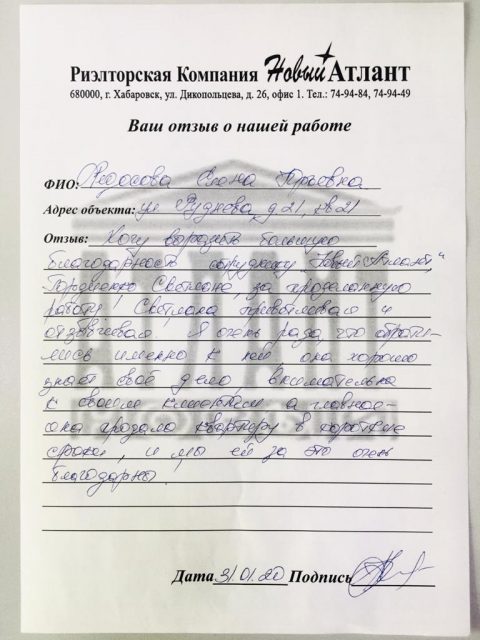 Риэлторская Компания Новый Атлант
680000, г. Хабаровск, ул. Дикопольцева, д. 26, офис 1. Тел.: 74-94-84, 74-94-49
Ваш отзыв о нашей работе
ФИО: Федосова Елена Юрьевна
Адрес объекта: ул Руднева д 21, кв 21
Отзыв: Хочу выразить большую
благодарность сотруднику "Новый Атлант"
Гордиенко Светлане, за проделанную
работу! Светлана приветливая и
отзывчивая! Я очень рада, что обрати-
лись именно к ней, она хорошо
знает своё дело, внимательна
к своим клиентам а главное-
она продала квартиру в короткие
сроки, и мы ей за это очень
благодарны.
Дата 31.01.20 Подпись